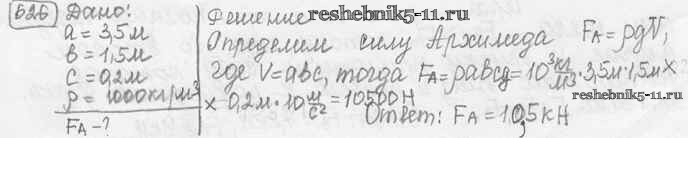 626 Дано:
a = 3,5м
b = 1,5м
c = 0,2м
ρ = 1000кг/м³
FA - ?
Решение
reshebnik5-11.ru
Определим силу Архимеда FA = ρgV,
где V = abc, тогда FA = ρabcg = 10³ кг/м³ · 3,5м · 1,5м ×
× 0,2м · 10 м/с² = 10500Н
Ответ: FA = 10,5кН
reshebnik5-11.ru